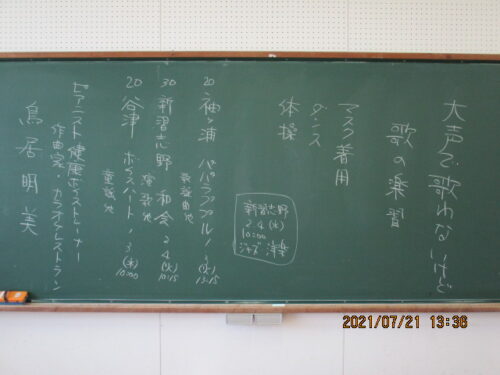 大声で歌わないけど
歌の楽習
マスク着用
ダンス
体操
新習志野
24(水)
10:00
ジャズ 洋楽
20 袖ヶ浦
13:15
30 新習志野 和会 24(火)
10:15
20 谷津 ボイスハート 13(木)
10:00
童謡
ピアニスト 健康ボイストレーナー
作曲家・カラオケレストラン
鳥居明美
2021/07/21 13:36